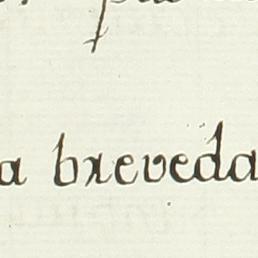 a breveda